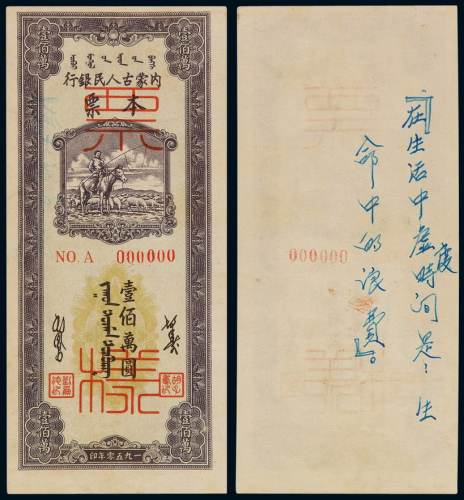 壹佰萬
壹佰萬
內蒙古人民銀行
本票
票
NO. A 000000
壹佰萬圓
樣
壹佰萬
壹佰萬
一九五零年印
「在生活中虛度時間是：生
命中的浪費」。
000000